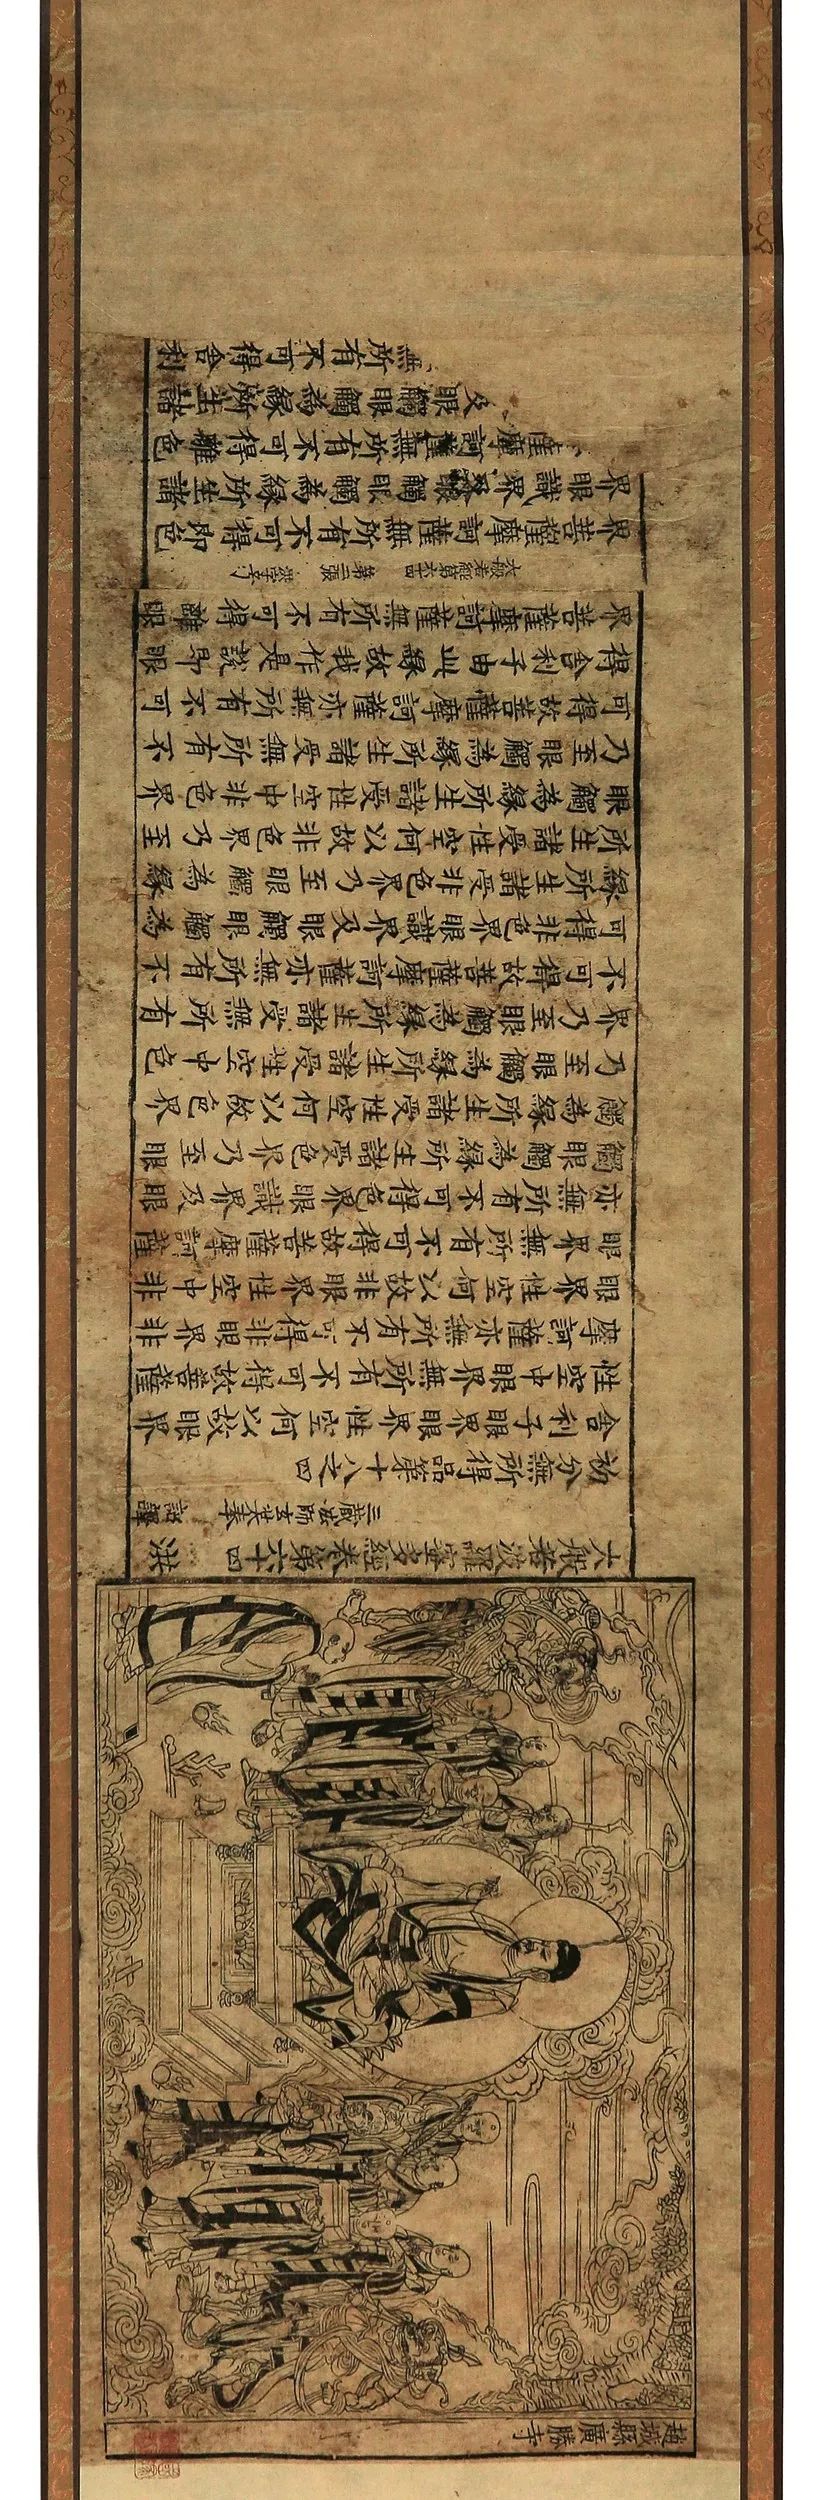 趙城縣廣勝寺
大般若波羅蜜多經卷第六十四 洪
三藏法師玄奘奉 詔譯
初分無所得品第十八之四
舍利子眼界眼界性空何以故眼界
性空中眼界無所有不可得故菩薩
摩訶薩亦無所有不可得非眼界非
眼界性空何以故非眼界性空中非
眼界無所有不可得故菩薩摩訶薩
亦無所有不可得色界眼識界及眼
觸眼觸為緣所生諸受色界乃至眼
觸為緣所生諸受性空何以故色界
乃至眼觸為緣所生諸受性空中色
界乃至眼觸為緣所生諸受無所有
不可得故菩薩摩訶薩亦無所有不
可得非色界眼識界及眼觸眼觸為
緣所生諸受非色界乃至眼觸為緣
所生諸受性空何以故非色界乃至
眼觸為緣所生諸受性空中非色界
乃至眼觸為緣所生諸受無所有不
可得故菩薩摩訶薩亦無所有不可
得舍利子由此緣故我作是說即眼
界菩薩摩訶薩無所有不可得離眼
大般若經第六十四 第二張
界菩薩摩訶薩無所有不可得即色
界眼識界及眼觸眼觸為緣所生諸
薩摩訶薩無所有不可得離色
及眼觸眼觸為緣所生諸
無所有不可得舍利